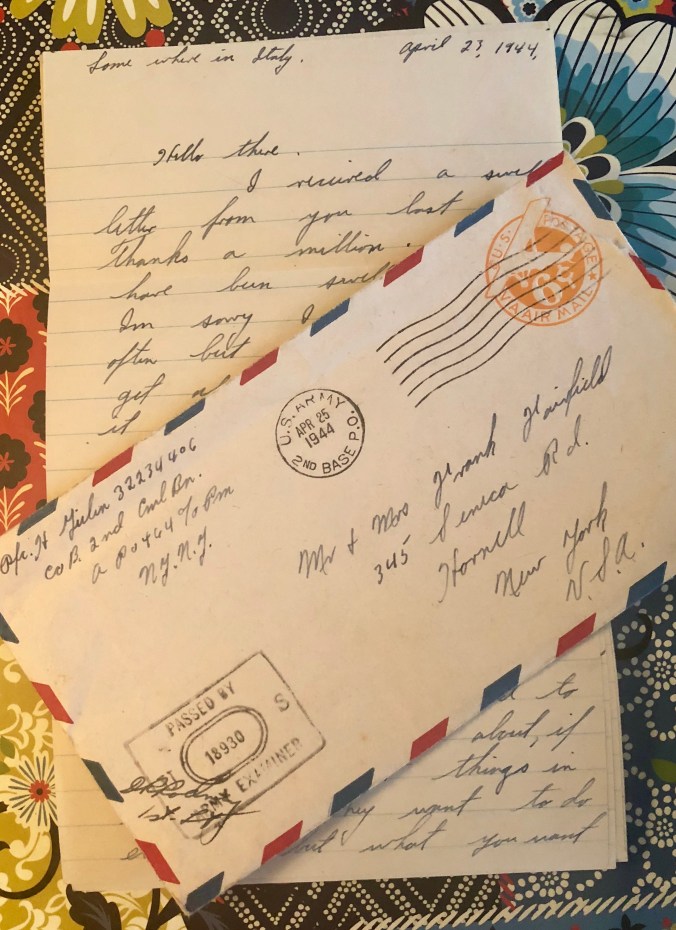 Some where in Italy.
April 23, 1944,
Hello there.
I recieved a swel
letter from you last
thanks a million.
have been swel
Im sorry I
often but
get a
it
U.S. POSTAGE
VIA AIR MAIL
U.S. ARMY
APR 25
1944
2ND BASE P.O.
Pfc. H 32234406
Co B. 2nd Cml Bn.
A P O 464 % Pm
N.Y. N.Y.
Mr & Mrs Frank Hairfield
345 Seneca Rd.
Hornell
New York
U.S.A.
PASSED BY
S
18930
ARMY EXAMINER
to
about, if
things in
they want to do
but what you want